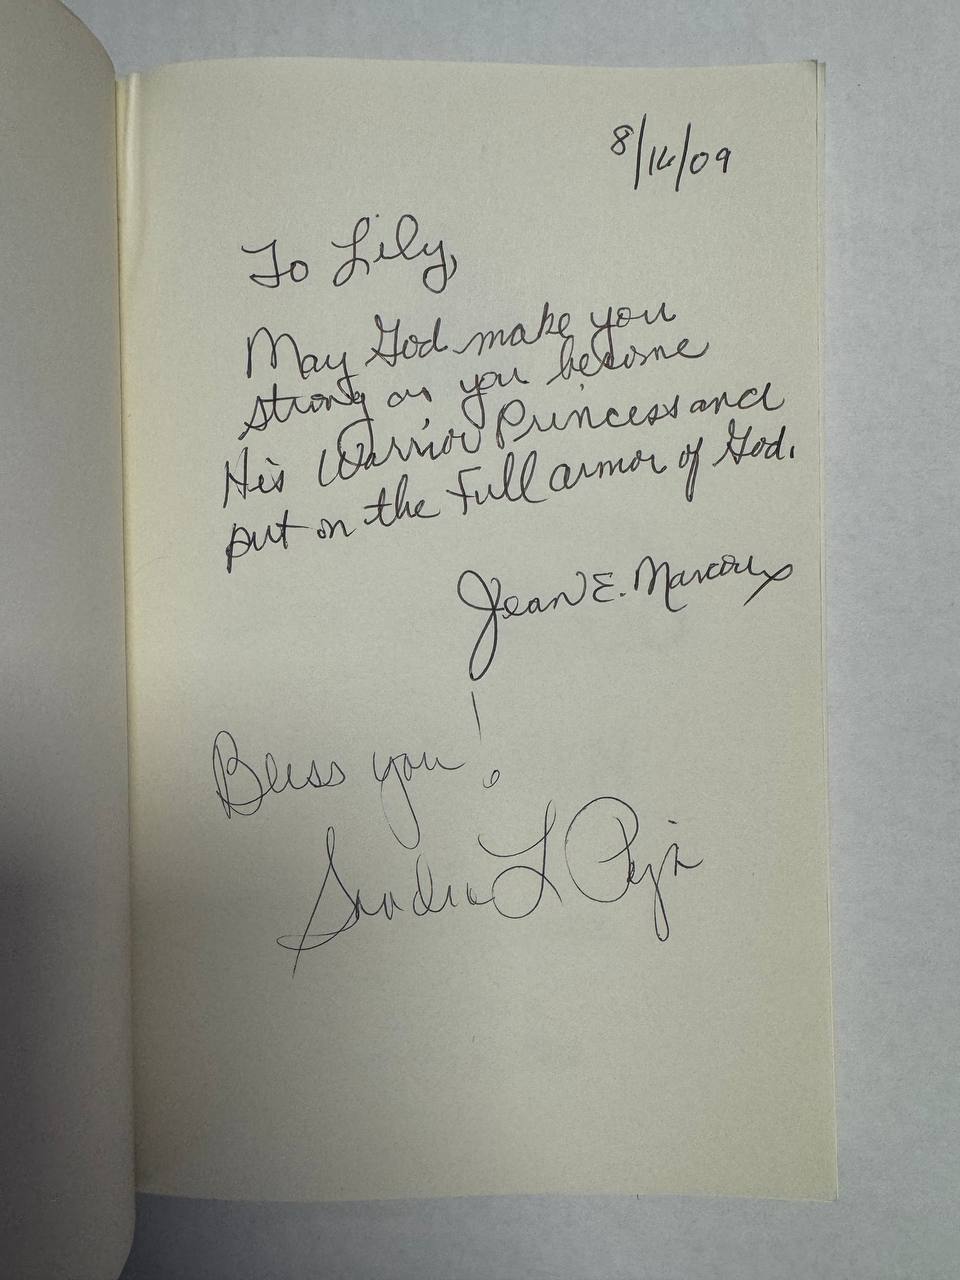 8/16/09
To Lily,
May God make you
strong as you become
His Warrior Princess and
put on the Full armor of God.
Jean E. Marcoux
Bless you!
Sandra L